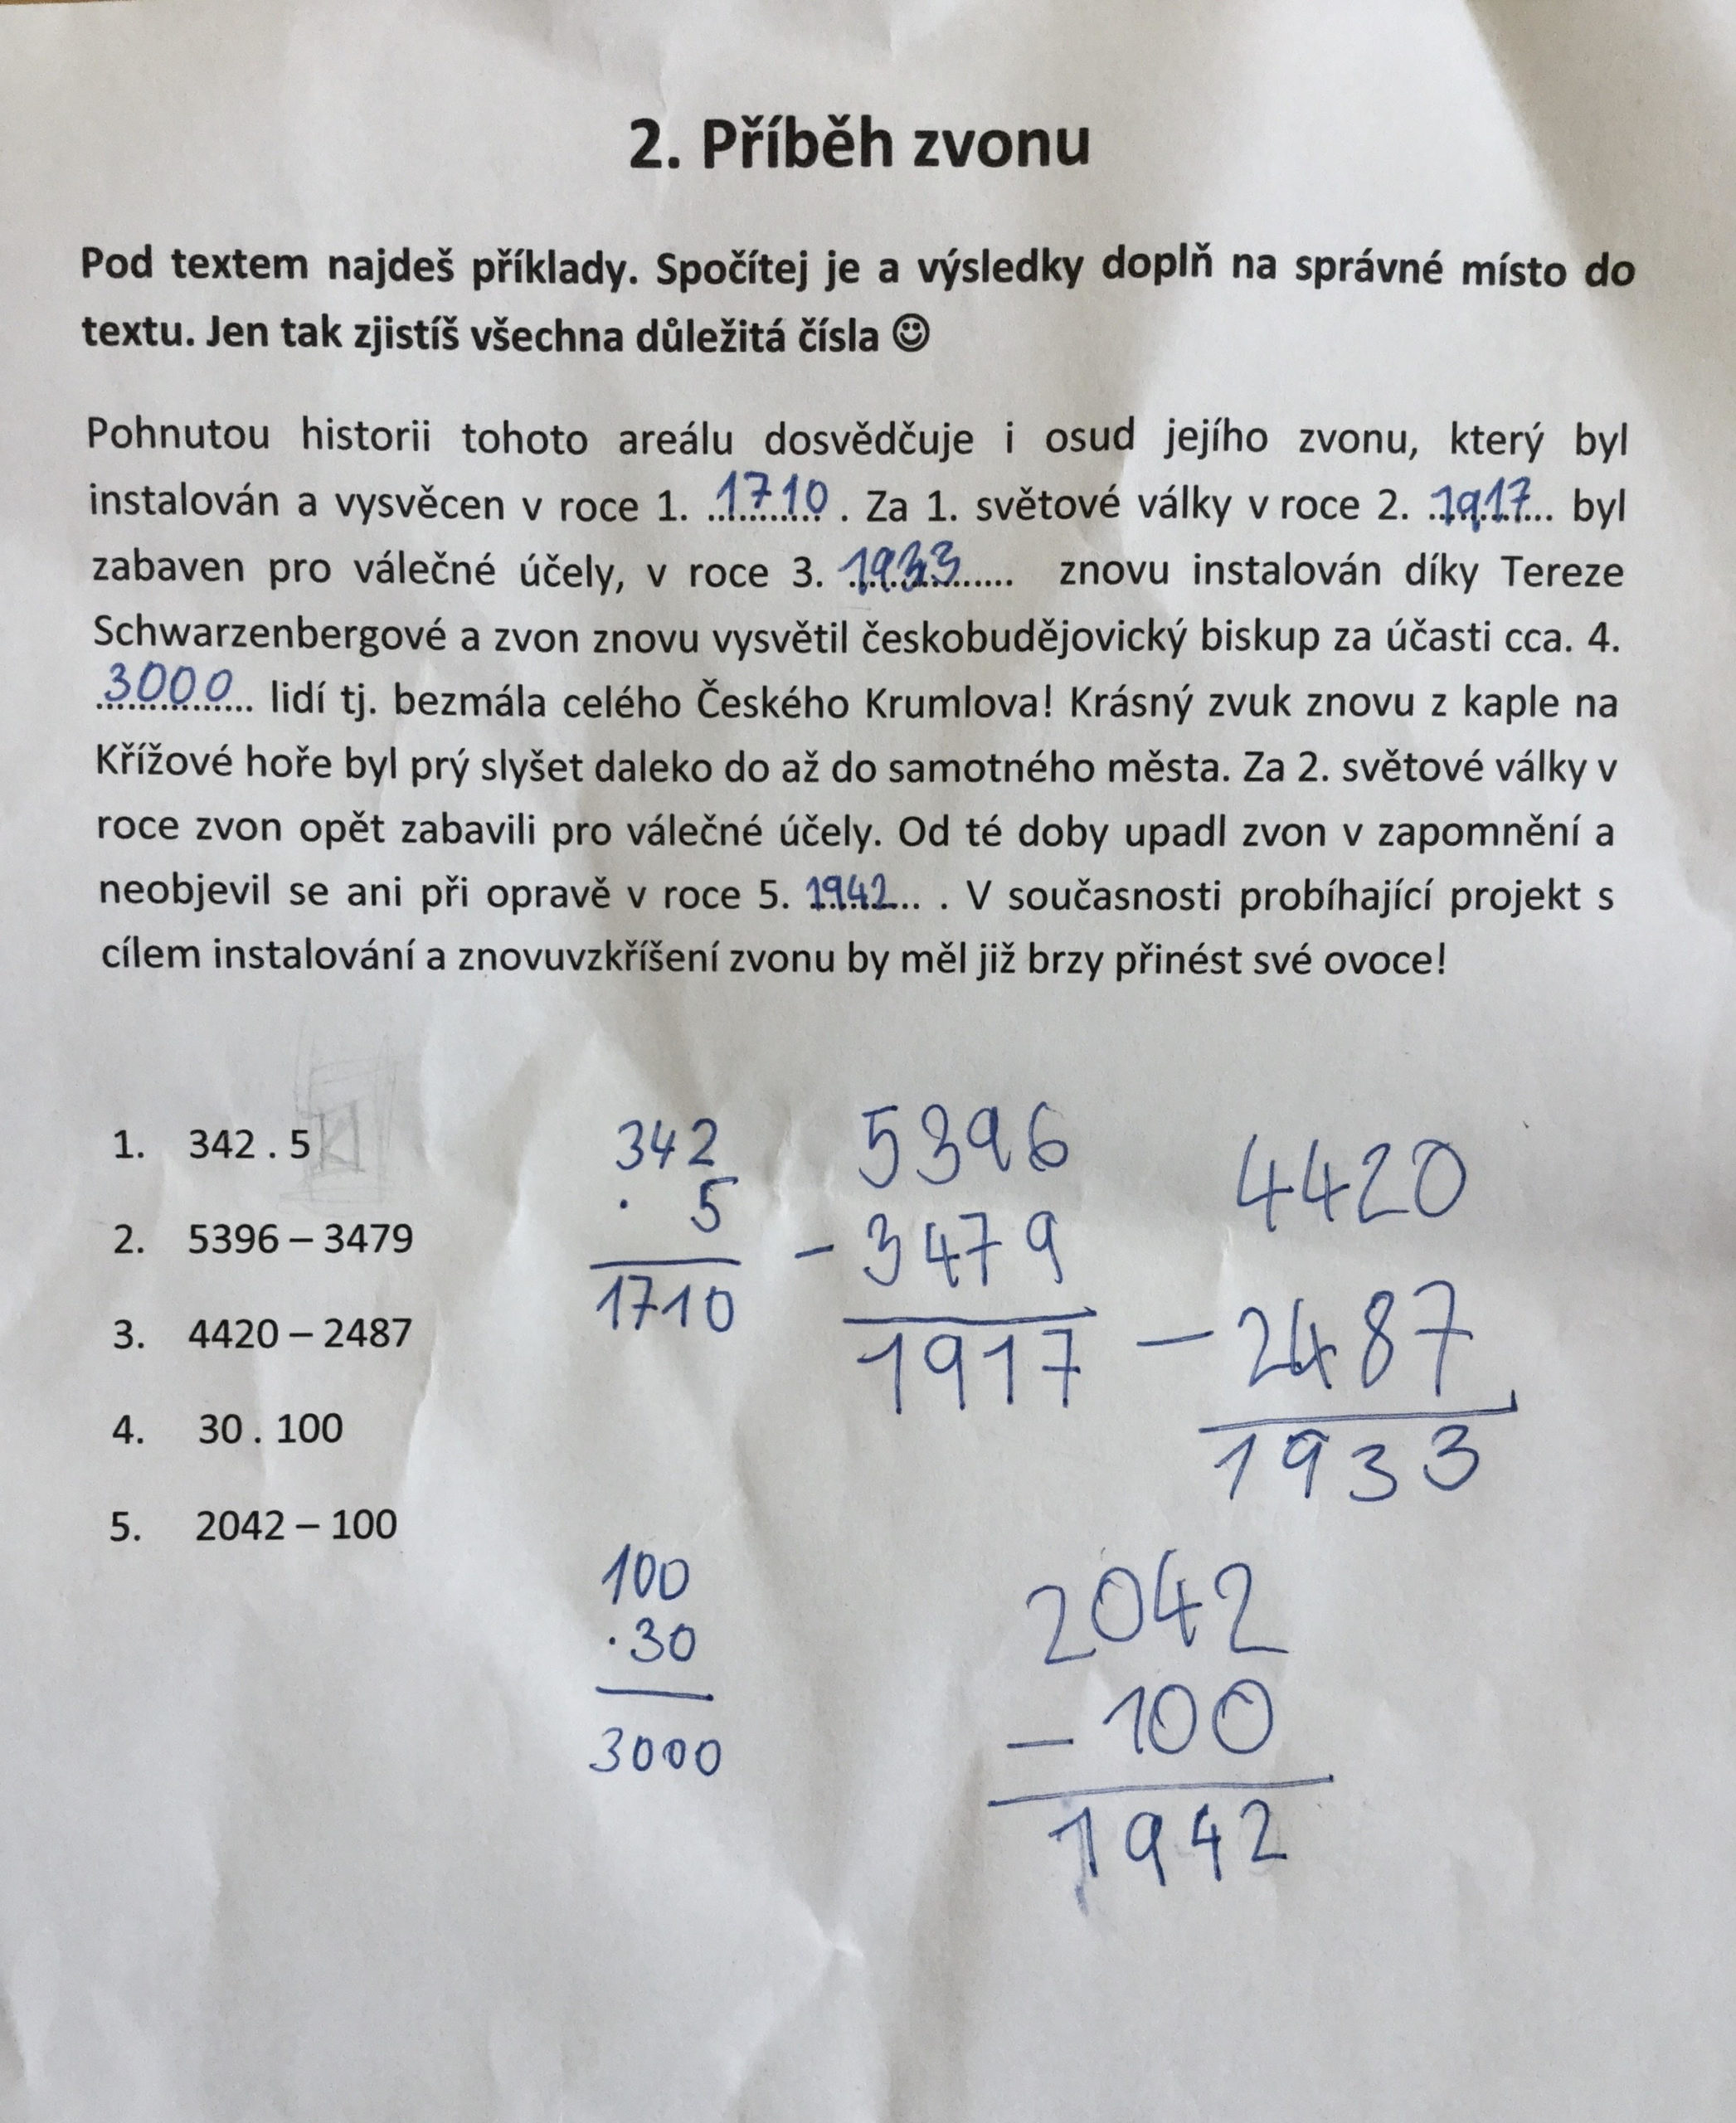 2. Příběh zvonu
Pod textem najdeš příklady. Spočítej je a výsledky doplň na správné místo do
textu. Jen tak zjistíš všechna důležitá čísla ☺
Pohnutou historii tohoto areálu dosvědčuje i osud jejího zvonu, který byl
instalován a vysvěcen v roce 1. 1710 . Za 1. světové války v roce 2. 1917 byl
zabaven pro válečné účely, v roce 3. 1933 znovu instalován díky Tereze
Schwarzenbergové a zvon znovu vysvětil českobudějovický biskup za účasti cca. 4.
3000 lidí tj. bezmála celého Českého Krumlova! Krásný zvuk znovu z kaple na
Křížové hoře byl prý slyšet daleko do až do samotného města. Za 2. světové války v
roce zvon opět zabavili pro válečné účely. Od té doby upadl zvon v zapomnění a
neobjevil se ani při opravě v roce 5. 1942 . V současnosti probíhající projekt s
cílem instalování a znovuvzkříšení zvonu by měl již brzy přinést své ovoce!
1. 342 . 5
2. 5396 – 3479
3. 4420 – 2487
4. 30 . 100
5. 2042 – 100
342
· 5
1710
5396
– 3479
1917
4420
– 2487
1933
100
· 30
3000
2042
– 100
1942